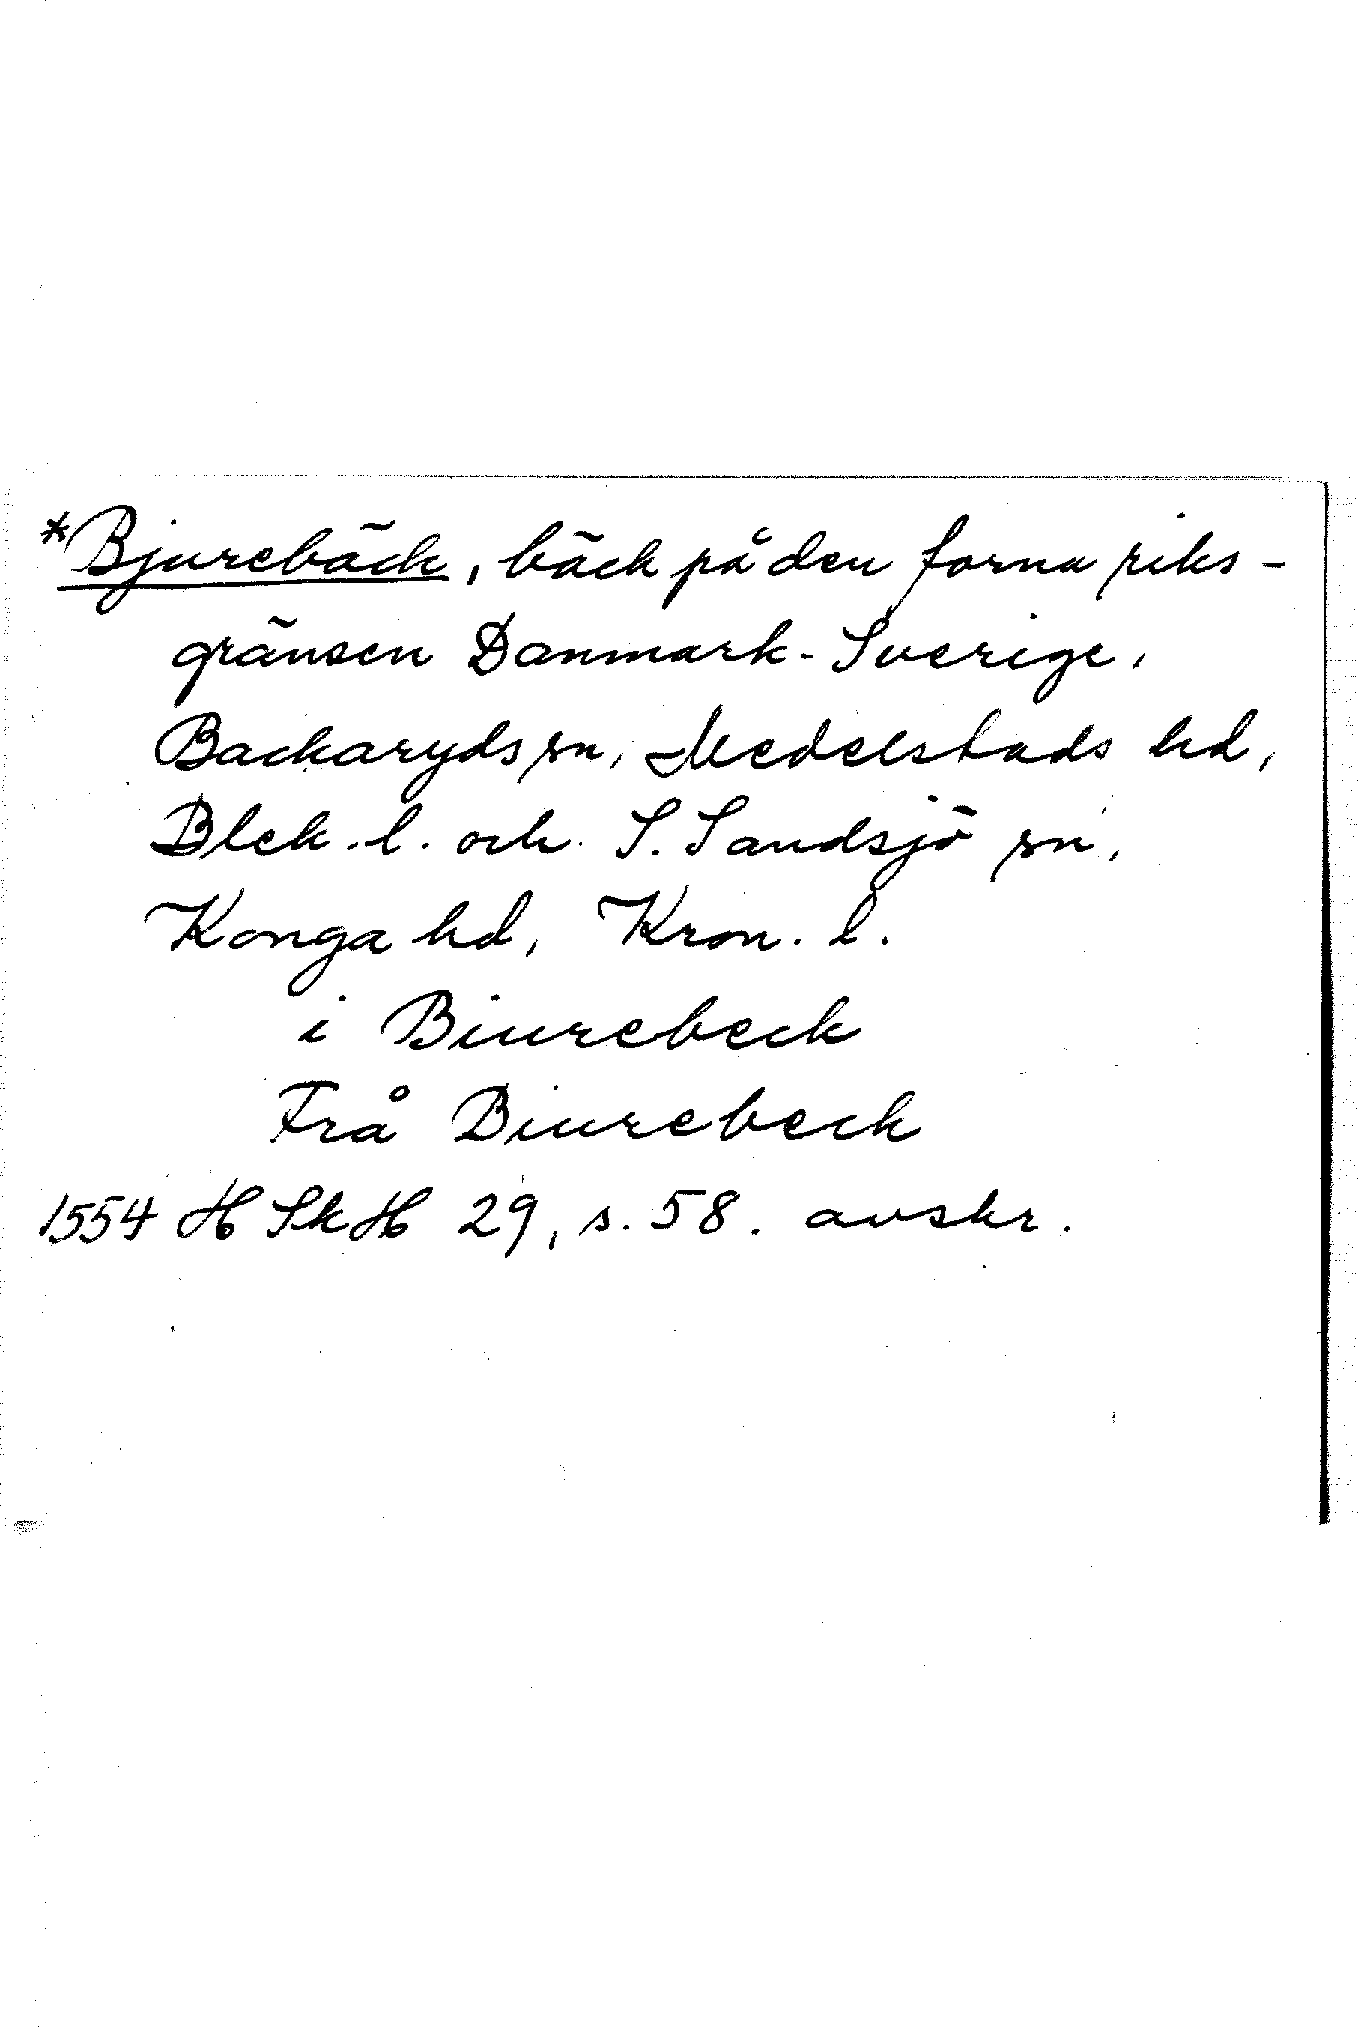 *Bjurebäck, bäck på den forna riks-
gränsen Danmark-Sverige,
Backaryds sn, Medelstads hd,
Blek. l. och S. Sandsjö sn,
Konga hd, Kron. l.
i Biurebeck
Frå Biurebeck
1554 HSkH 29, s. 58. avskr.